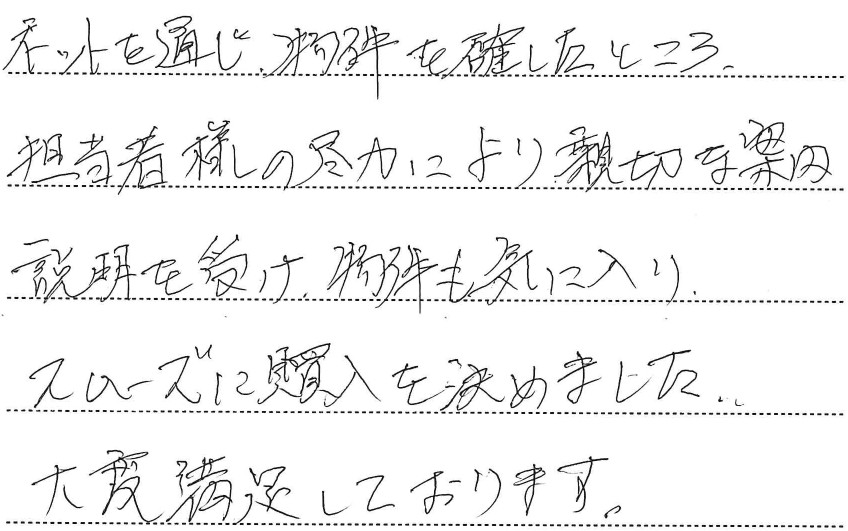 ネットを通じ、物件を確したところ、
担当者様の尽力により親切な案内
説明を受け、物件も気に入り、
スムーズに購入を決めました。
大変満足しております。